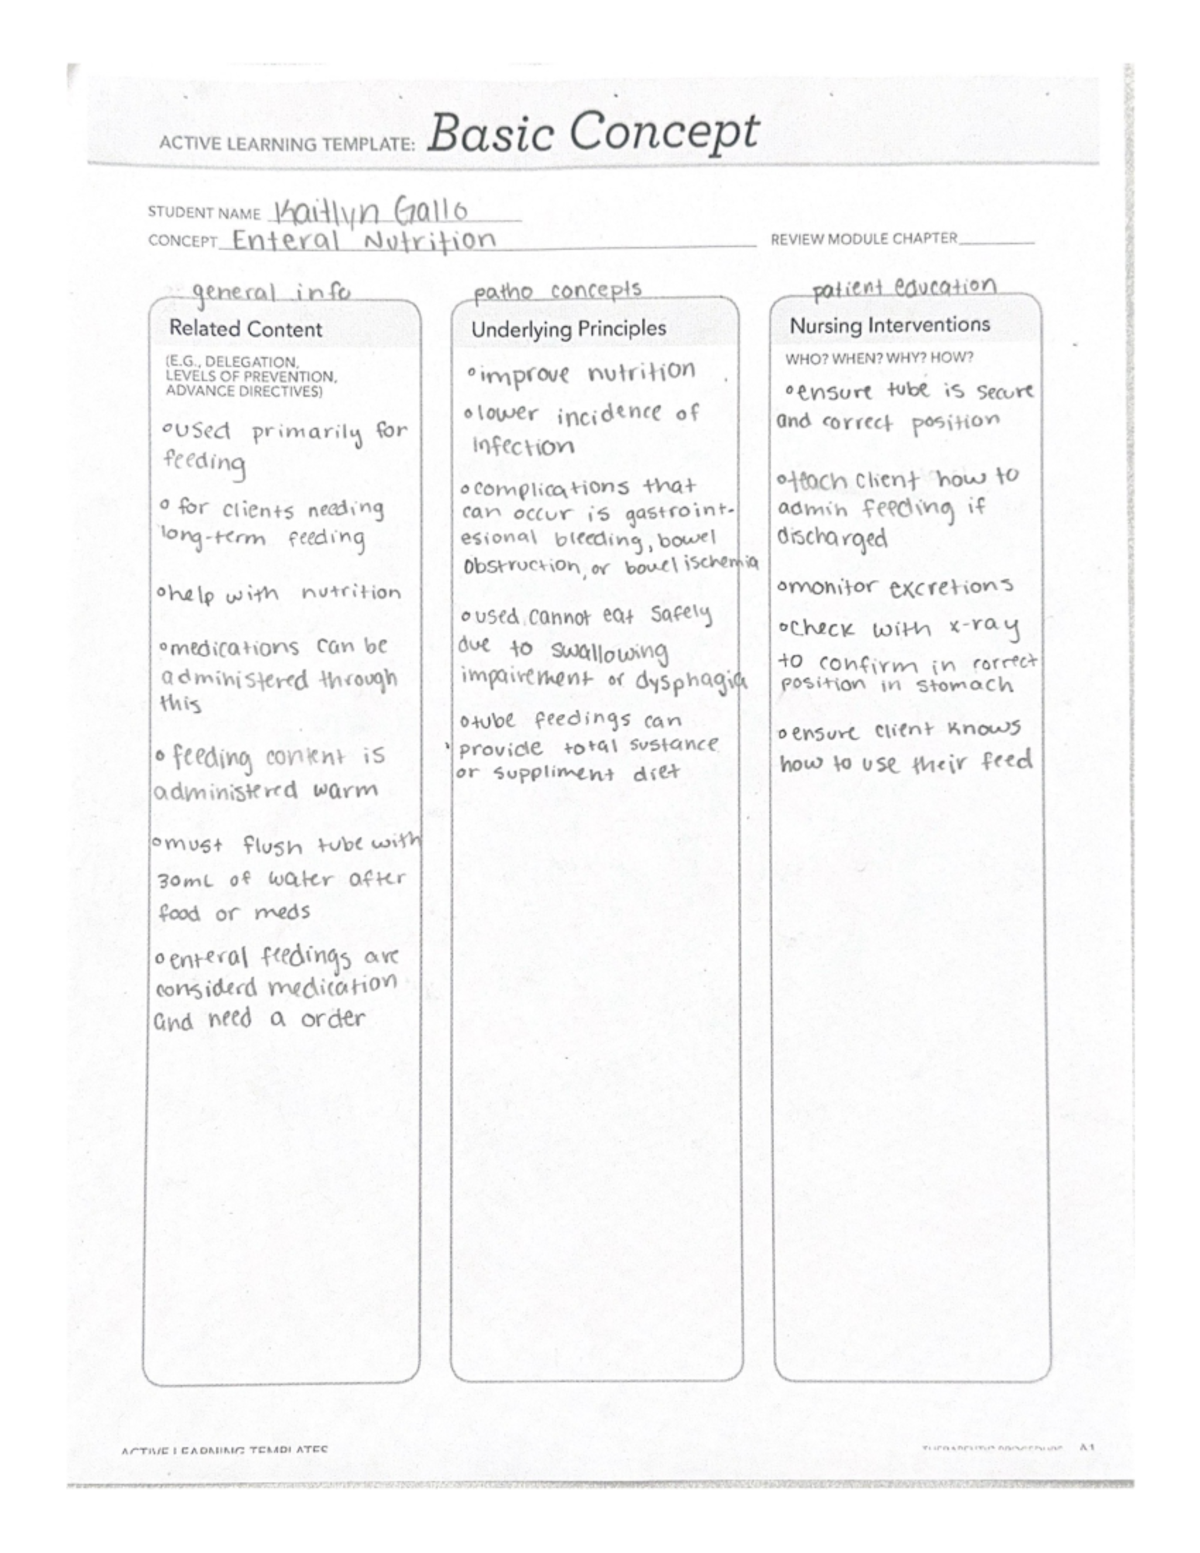 ACTIVE LEARNING TEMPLATE: Basic Concept
STUDENT NAME Kaitlyn Gallo
CONCEPT Enteral Nutrition
REVIEW MODULE CHAPTER
general info
Related Content
(E.G., DELEGATION,
LEVELS OF PREVENTION,
ADVANCE DIRECTIVES)
used primarily for
feeding
for clients needing
long-term feeding
help with nutrition
medications can be
administered through
this
feeding content is
administered warm
must flush tube with
30mL of water after
food or meds
enteral feedings are
considerd medication
and need a order
patho concepts
Underlying Principles
improve nutrition
lower incidence of
infection
complications that
can occur is gastroint-
esional bleeding, bowel
obstruction, or bowel ischemia
used cannot eat safely
due to swallowing
impairement or dysphagia
tube feedings can
provide total sustance
or suppliment diet
patient education
Nursing Interventions
WHO? WHEN? WHY? HOW?
ensure tube is secure
and correct position
teach client how to
admin feeding if
discharged
monitor excretions
check with x-ray
to confirm in correct
position in stomach
ensure client knows
how to use their feed
ACTIVE LEARNING TEMPLATES
THERAPEUTIC PROCEDURE A1